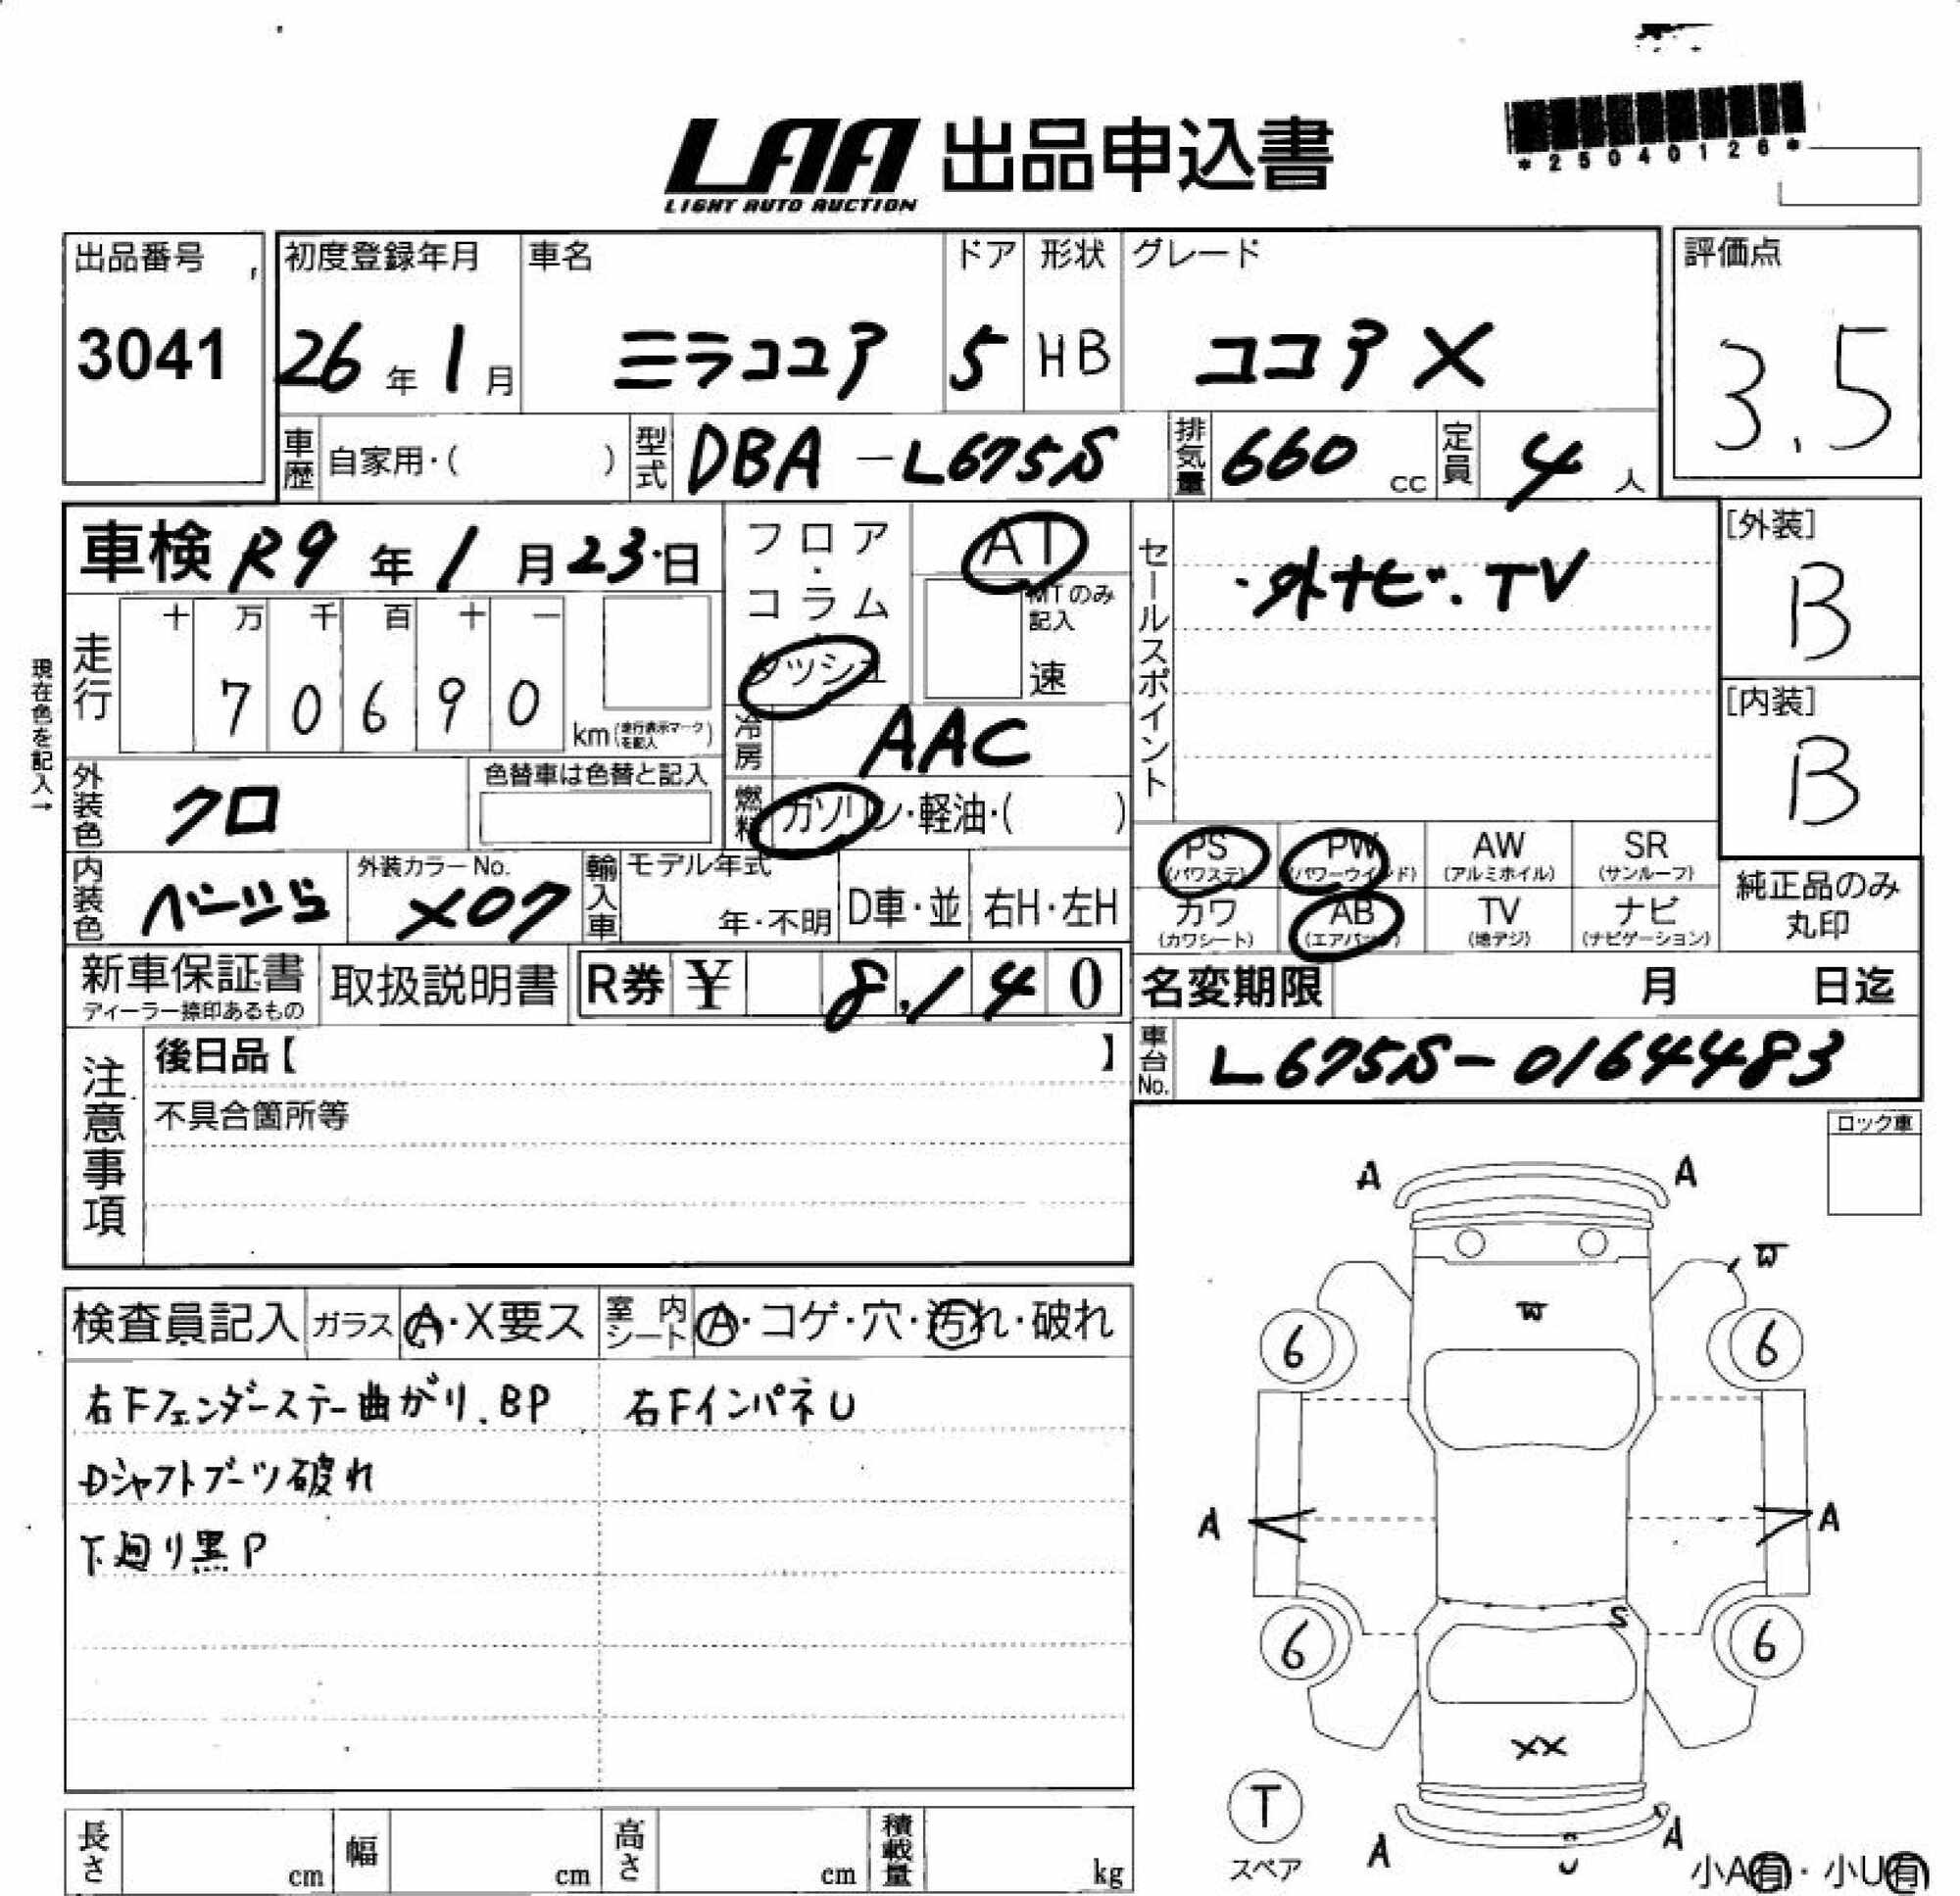 *25040126*
LAA 出品申込書
LIGHT AUTO AUCTION
出品番号
3041
初度登録年月
26年1月
車名
ミラココア
ドア
5
形状
HB
グレード
ココア X
評価点
3.5
車歴 自家用・( )
型式 DBA-L675S
排気量 660 cc
定員 4 人
車検 R9年1月23日
フロア・コラム・ダッシュ
AT
MTのみ記入
速
セールスポイント
・外ナビ.TV
[外装]
B
[内装]
B
現在色を記入→
走行
十 万 千 百 十 一
7 0 6 9 0
km(走行表示マークを記入)
冷房 AAC
燃料 ガソリン・軽油・( )
外装色 クロ
色替車は色替と記入
内装色 ベージュ
外装カラーNo.
X07
輸入車
モデル年式
年・不明
D車・並
右H・左H
PS (パワステ)
PW (パワーウインド)
AW (アルミホイル)
SR (サンルーフ)
カワ (カワシート)
AB (エアバッグ)
TV (地デジ)
ナビ (ナビゲーション)
純正品のみ丸印
新車保証書
ディーラー捺印あるもの
取扱説明書
R券 ¥ 8,140
名変期限 月 日迄
車台No. L675S-0164483
注意事項
後日品【 】
不具合箇所等
ロック車
検査員記入
ガラス A・X要ス
室内シート A・コゲ・穴・汚れ・破れ
右Fフェンダーステー曲がり.BP
右FインパネU
Dシャフトブーツ破れ
下廻り黒P
A A
W
W
6 6
A A
S
6 6
XX
T
スペア
A A
U
小A有・小U有
長さ cm
幅 cm
高さ cm
積載量 kg